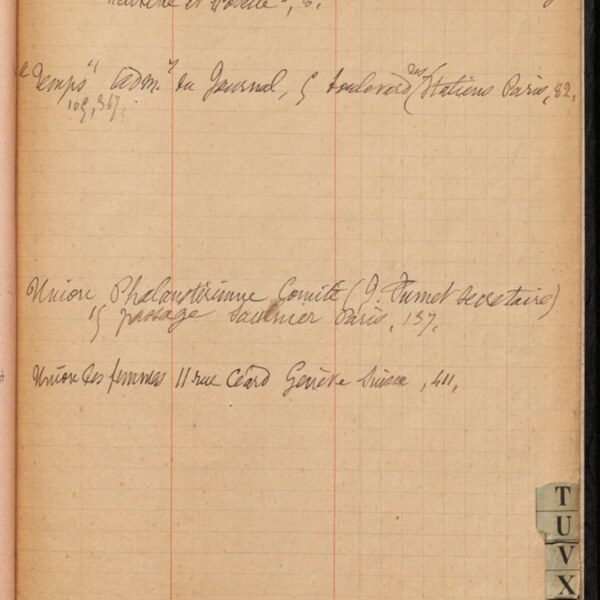 "Temps" Adm.ⁿ du Journal, 5 boulevard des Italiens Paris, 82.
109, 367.
Union Phalanstérienne Comité (J. Fumet secretaire)
15 passage Saulnier Paris, 137.
Union des femmes 11 rue Céard Genève Suisse, 411,
T
U
V
X